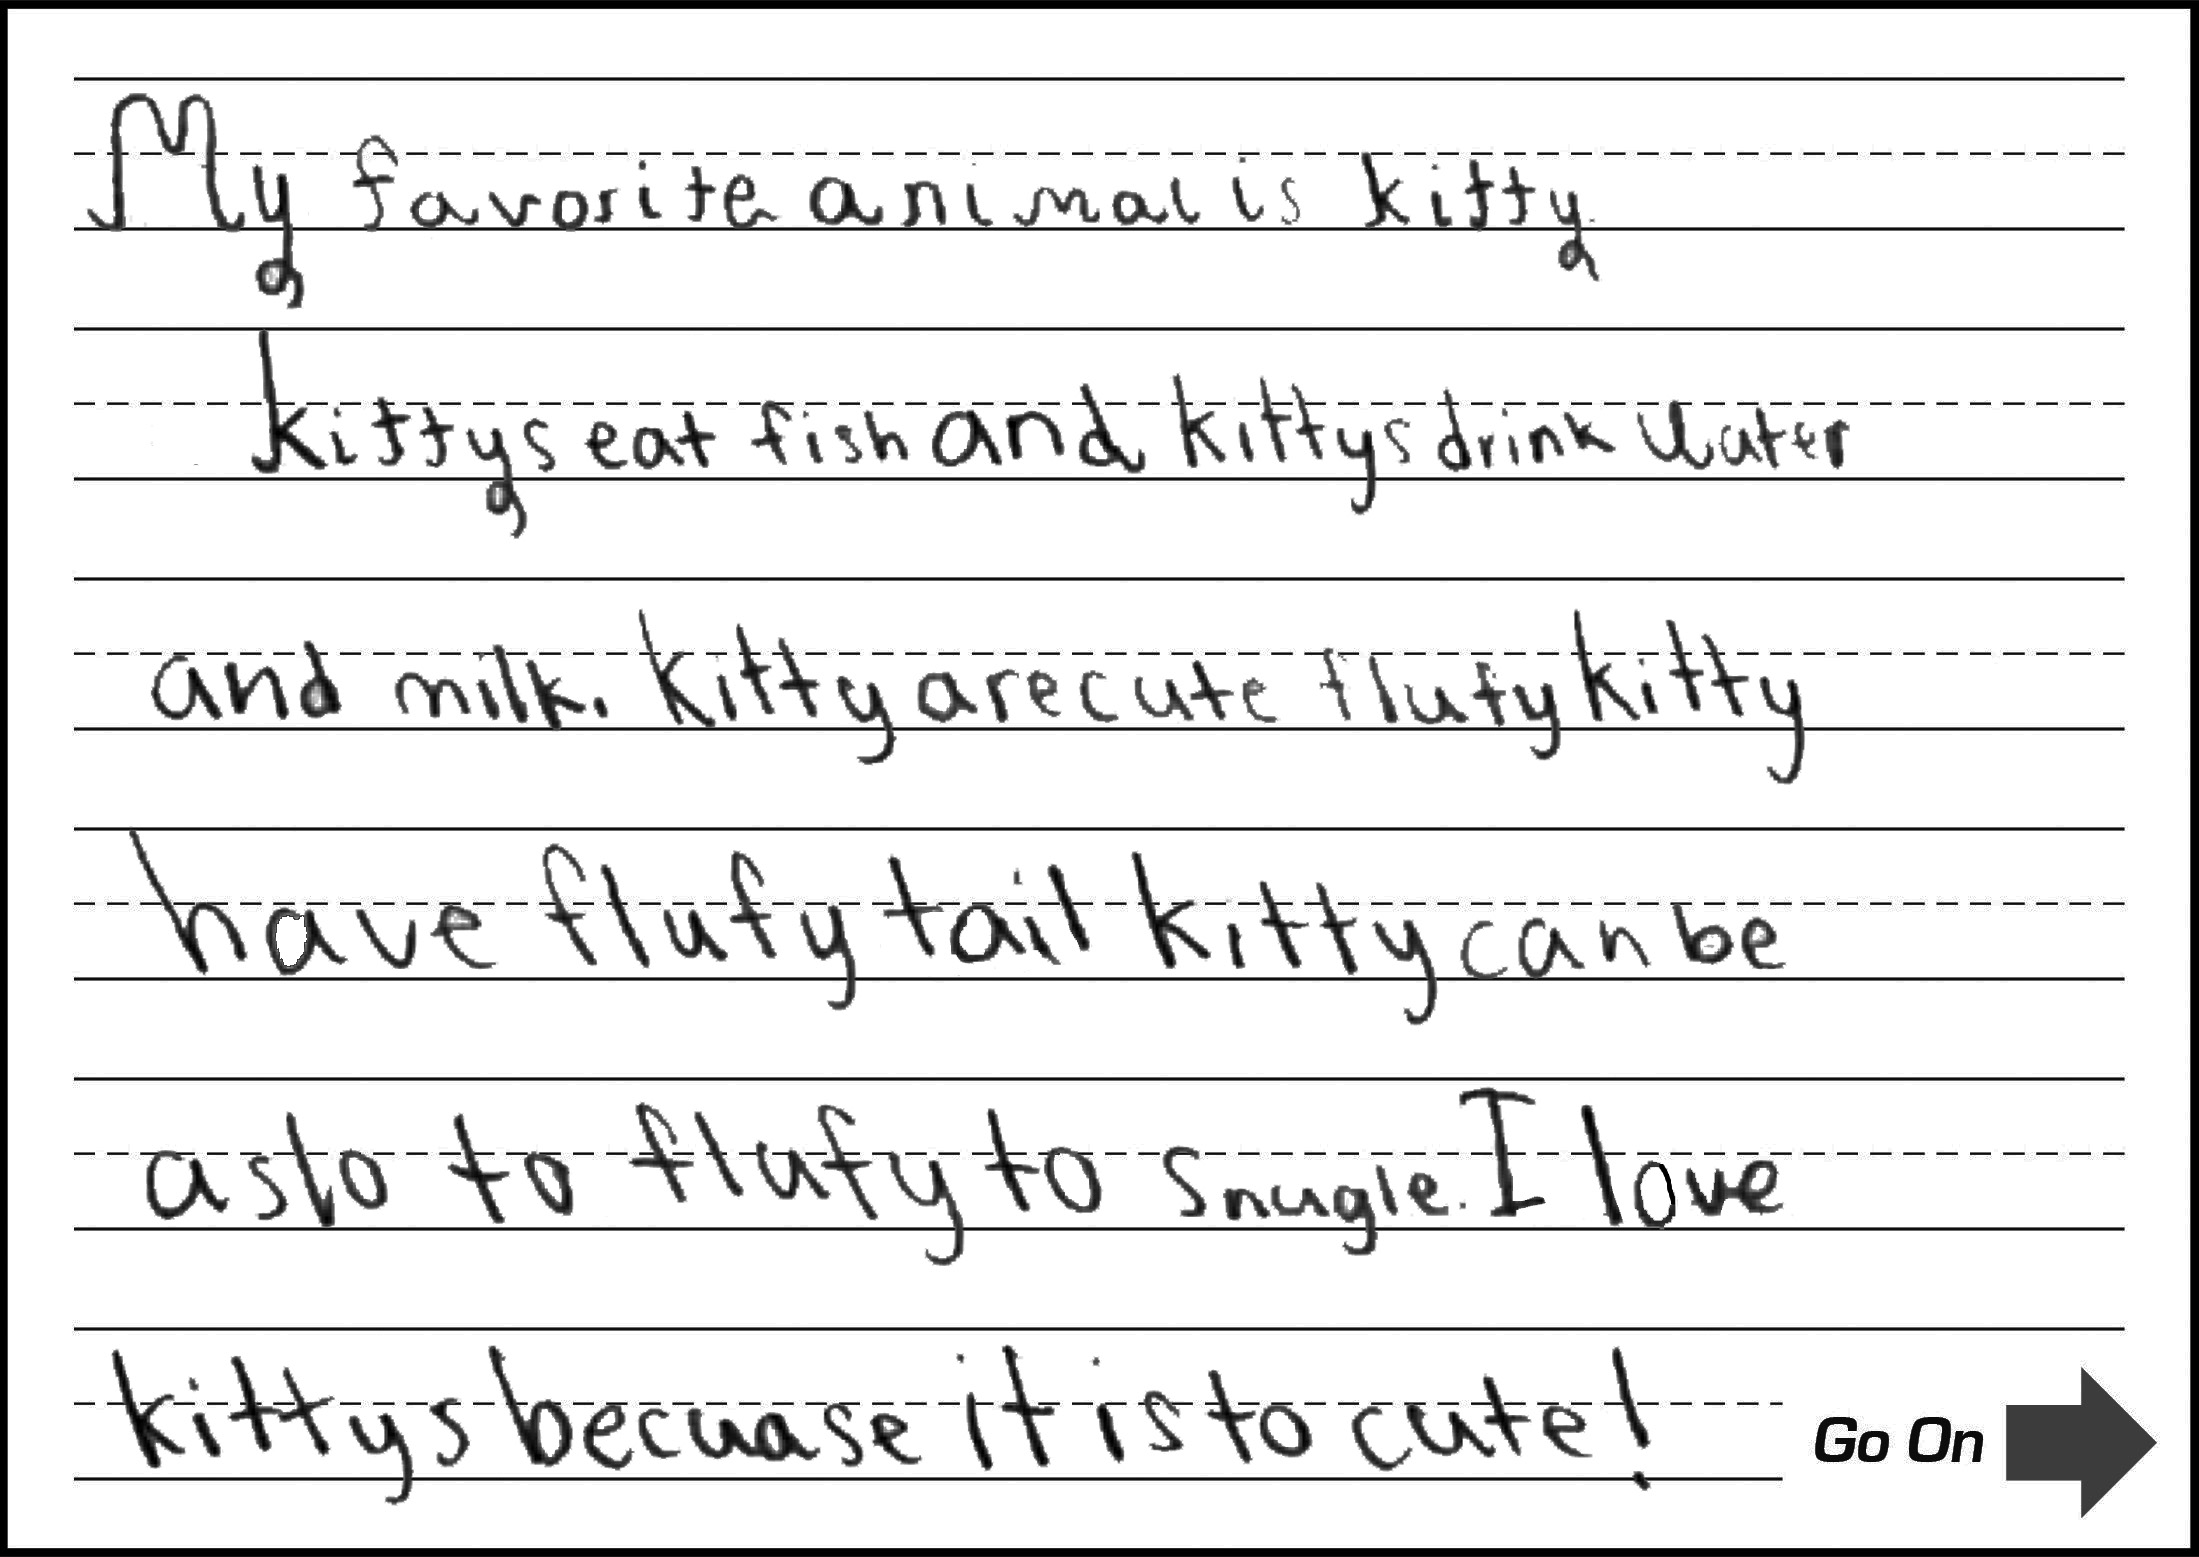 My favorite animal is kitty
kittys eat fish and kittys drink water
and milk. kitty are cute flufy kitty
have flufy tail kitty can be
aslo to flufy to snugle. I love
kittys becuase it is to cute!
Go On